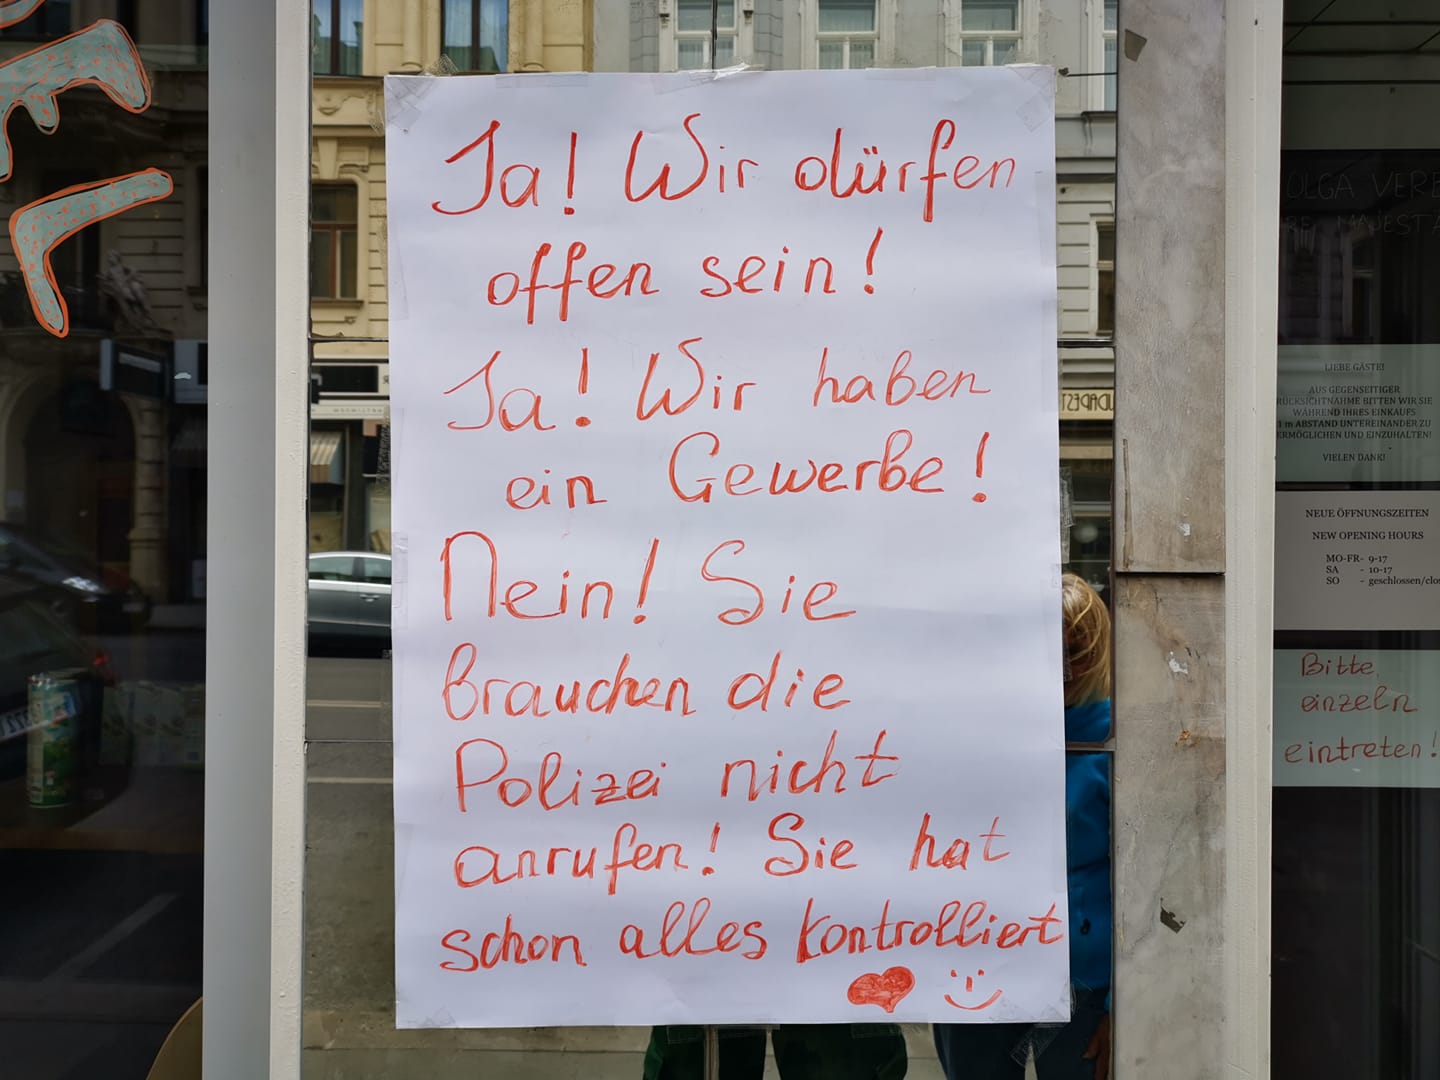 Ja! Wir dürfen
offen sein!
Ja! Wir haben
ein Gewerbe!
Nein! Sie
brauchen die
Polizei nicht
anrufen! Sie hat
schon alles kontrolliert
OLGA
LIEBE GÄSTE!
AUS GEGENSEITIGER
RÜCKSICHTNAHME BITTEN WIR SIE
WÄHREND IHRES EINKAUFS
1 m ABSTAND UNTEREINANDER ZU
ERMÖGLICHEN UND EINZUHALTEN!
VIELEN DANK!
NEUE ÖFFNUNGSZEITEN
NEW OPENING HOURS
MO-FR- 9-17
SA - 10-17
SO - geschlossen/clos
Bitte
einzeln
eintreten!